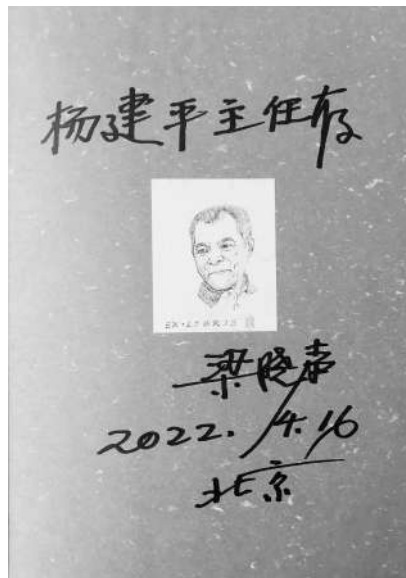 杨建平主任存
梁晓声
2022.4.16
北京